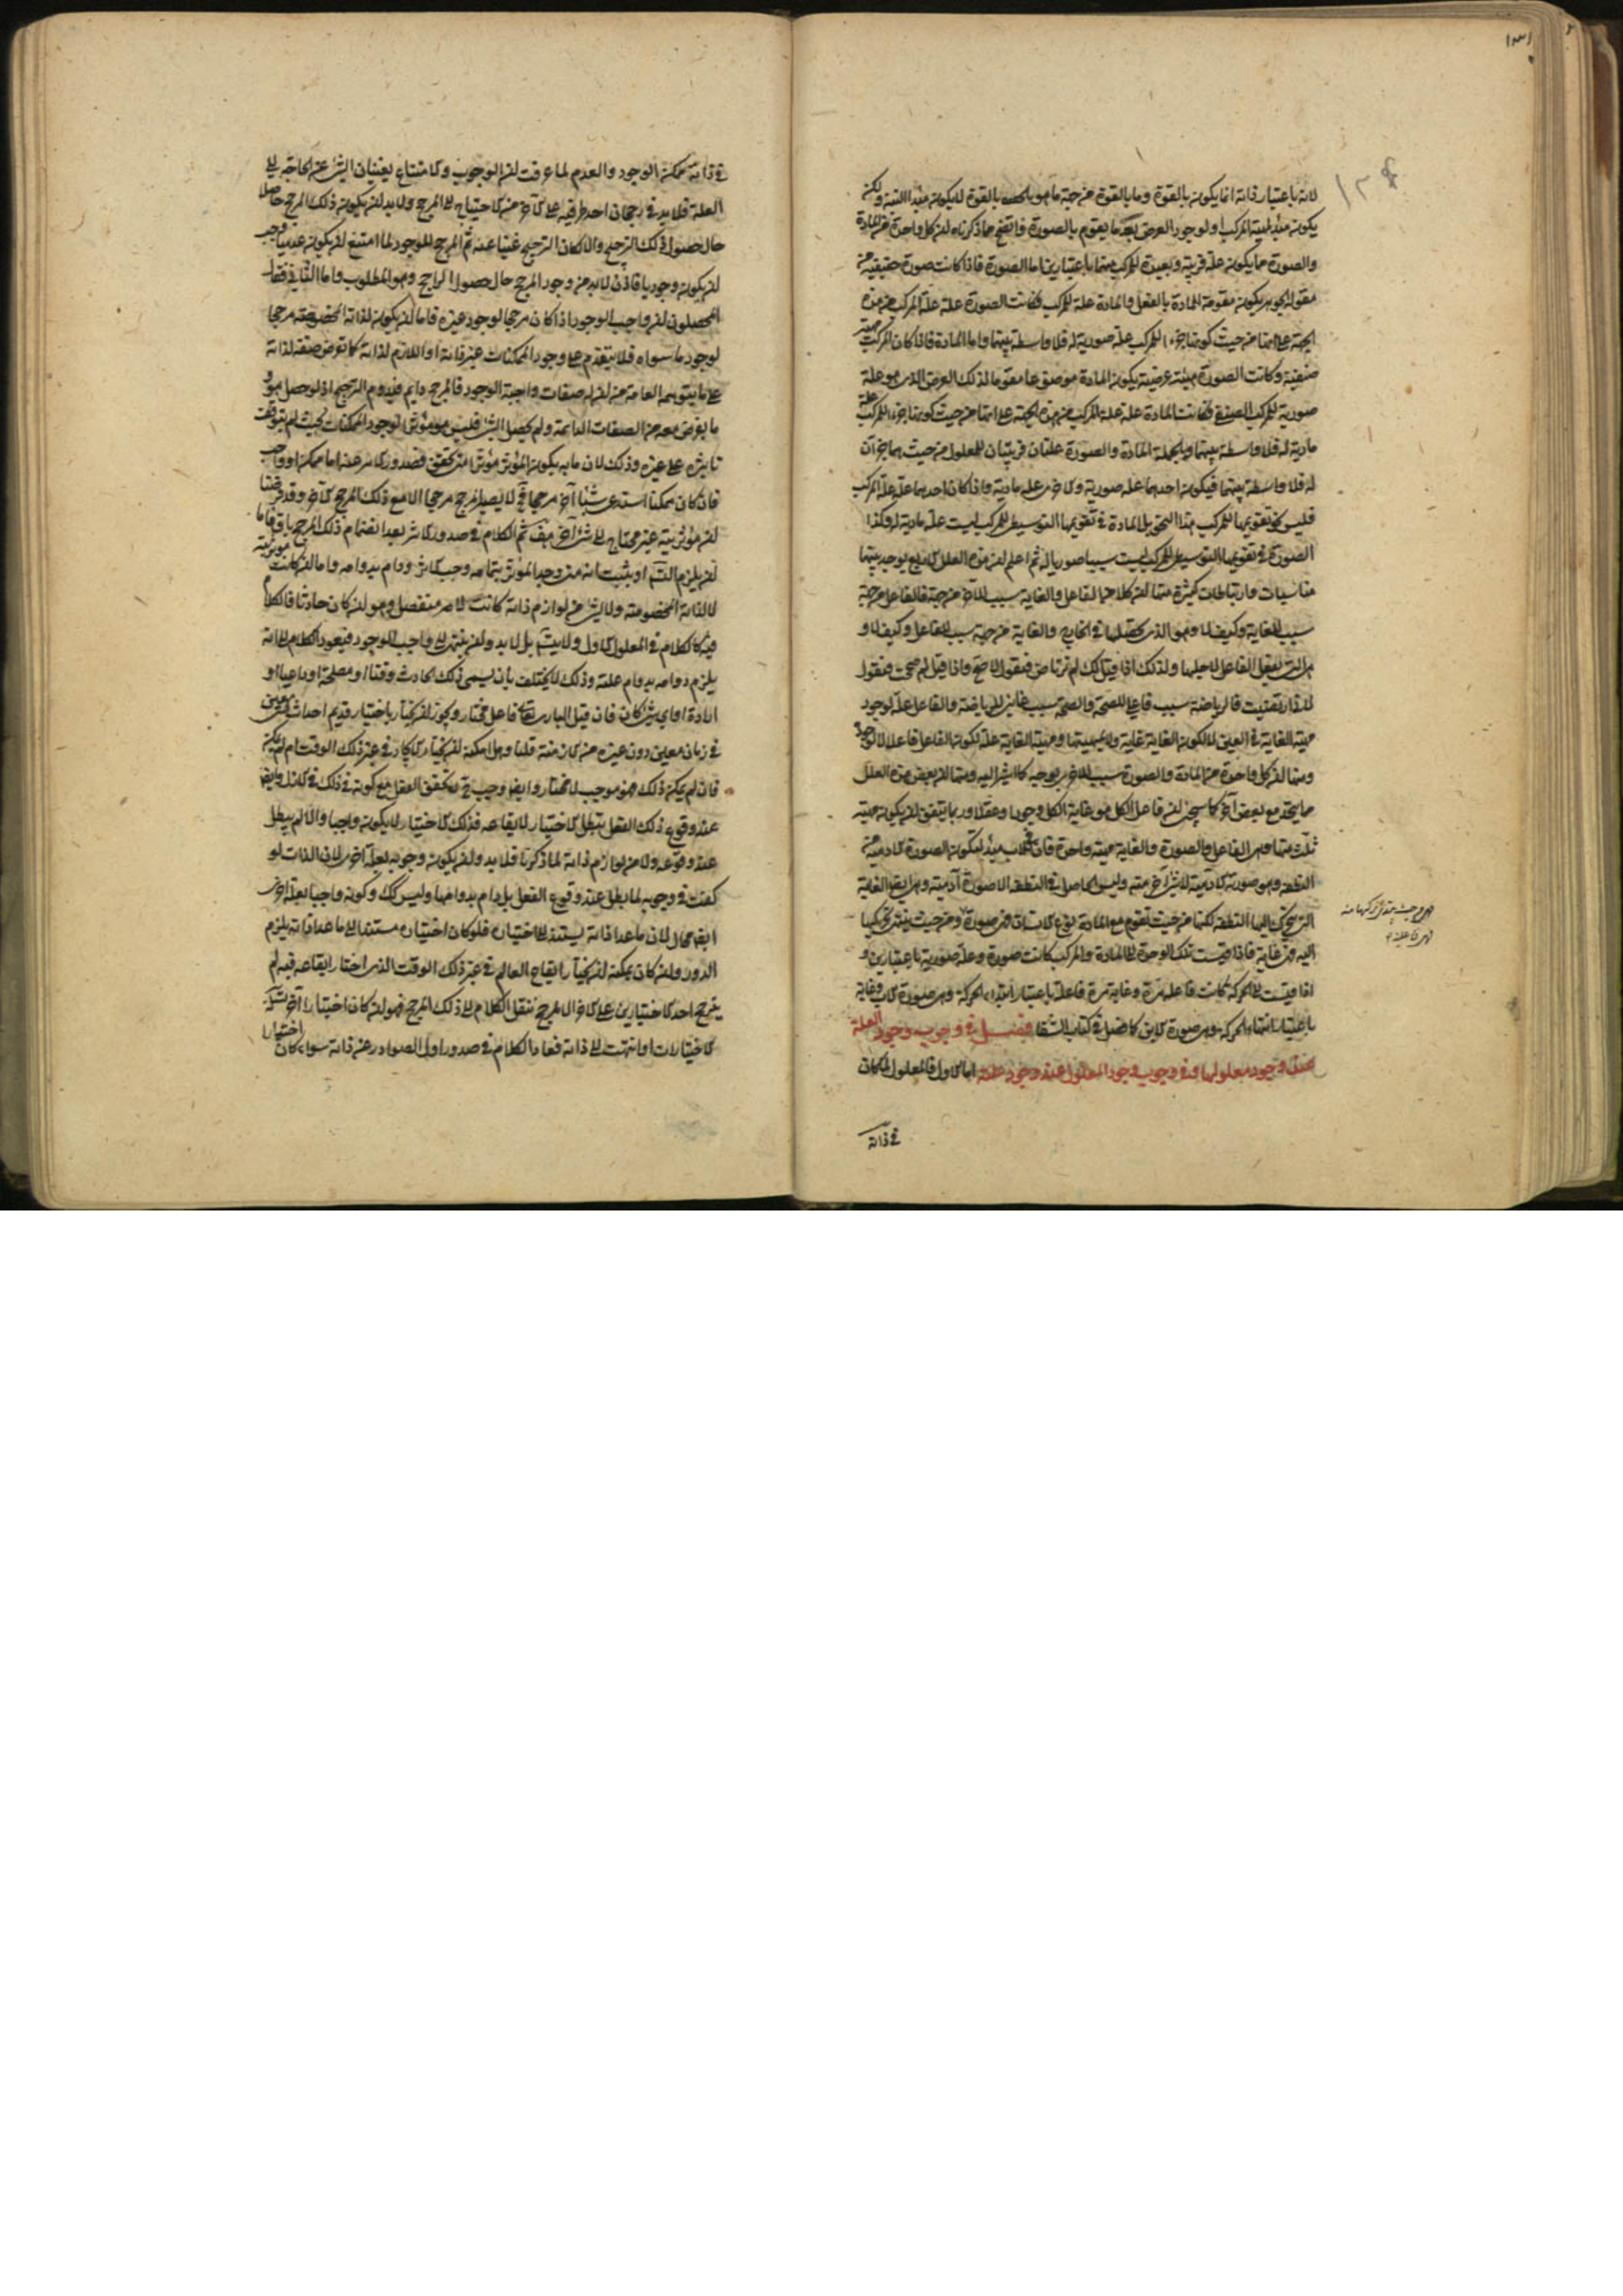 ١٣١
لانه باعتبار ذاته انما يكون بالقوة وما بالقوة من جهة ما هو بالقوة لا يكون مبدأ البتة ولكن
يكون مبدأ لمهية المركب او لوجود العرض بعد ما يتقوم بالصورة واتضح مما ذكرناه ان كل واحدة من المادة
والصورة مما يكون علة قريبة وبعيدة للمركب منهما باعتبارين اما الصورة فاذا كانت صورة حقيقية من
مقولة الجوهر يكون مقومة للمادة بالفعل والمادة علة للمركب فكانت الصورة علة علة المركب من هذه
الجهة على انها من حيث كونها جزء للمركب علة صورية له فلا واسطة بينهما واما المادة فاذا كان المركب مهية
صنفية وكانت الصورة هيئة عرضية يكون المادة موضوعا مقوما لذلك العرض الذى هو علة
صورية للمركب الصنفى فكانت المادة علة علة المركب من هذه الجهة على انها من حيث كونها جزء للمركب علة
مادية له فلا واسطة بينهما وبالجملة المادة والصورة علتان قريبتان للمعلول من حيث هما جزءان
له فلا واسطة بينهما فيكون احدهما علة صورية والاخر علة مادية واذا كان احدهما علة علة المركب
فليس نحو تقويمها للمركب هذا النحو بل المادة فى تقويمها التوسيطى للمركب ليست علة مادية له وكذا
الصورة فى تقويمها التوسيطى للمركب ليست سببا صوريا له ثم اعلم ان هذه العلل الاربع يوجد بينها
مناسبات وارتباطات كثيرة منها ان كلا من الفاعل والغاية سبب للاخر من جهة فالفاعل من جهة
سبب للغاية وكيف لا وهو الذى يحصلها فى الخارج والغاية من جهة سبب للفاعل وكيف لا و
هى التى يفعل الفاعل لاجلها ولذلك اذا قيل لك لم ترتاض فتقول لاصح واذا قيل لم صححت فتقول
لانى ارتضيت فالرياضة سبب فاعلى للصحة والصحة سبب غائى للرياضة والفاعل علة لوجود
مهية الغاية فى العين لا لكون الغاية غاية ولا لمهيتها ومهية الغاية علة لكون الفاعل فاعلا لا لوجوده
ومنها ان كل واحدة من المادة والصورة سبب للاخرى بوجه كما اشير اليه ومنها ان بعض هذه العلل
مما يتحد مع بعض آخر كما سيجئ ان فاعل الكل هو غاية الكل وجودا وعقلا وربما يتفق ان يكون مهية
ثلث منها وهى الفاعل والصورة والغاية مهية واحدة فان فى الاب مبدأ لتكون الصورة الآدمية من
النطفة وهو صورته الآدمية لا شئ آخر منه وليس الحاصل فى النطفة الا صورة آدمية وهى ايضا الغاية
التى يتحرك اليها النطفة لكنها من حيث تقوم مع المادة نوع الانسان فهى صورة ومن حيث ينتهى تحريكها
اليه فهى غاية فاذا قيست تلك الوحدة الى المادة والمركب كانت صورة وعلة صورية باعتبارين و
اذا قيست الى الحركة كانت فاعلة مرة وغاية مرة فاعلة باعتبار ابتداء الحركة وهى صورة الاب وغاية
باعتبار انتهاء الحركة وهى صورة الابن كما فصل فى كتاب الشفا فصل فى وجوب وجود العلة
عند وجود معلولها وفى وجوب وجود المعلول عند وجود علته اما الاول فالمعلول لما كان
فى ذاته
فى ذاته ممكن الوجود والعدم لما عرفت ان الوجوب والامتناع يغنيان الشئ عن الحاجة الى
العلة فلا بد فى رجحان احد طرفيه على الآخر من الاحتياج الى المرجح ولا بد ان يكون ذلك المرجح حاصلا
حال حصول ذلك الترجيح والا لكان الترجيح غنيا عنه ثم المرجح للوجود لما امتنع ان يكون عدميا وجب
ان يكون وجوديا فاذن لا بد من وجود المرجح حال حصول الراجح وهو المطلوب واما الثانى فقال
المحصلون ان واجب الوجود اذا كان مرجحا لوجود غيره فاما ان يكون لذاته المخصوصة مرجحا
لوجود ما سواه فلا يتقدم على وجود الممكنات غير ذاته او اللازم لذاته كما تفرض صفة لذاته
على ما يتوهمه العامة من ان له صفات واجبة الوجود فالمرجح دايم فيدوم الترجيح اذ لو حصل هو و
ما يفرض معه من الصفات الدائمة ولم يحصل الشئ فليس هو مؤثرا لوجود الممكنات بحيث لم يتوقف
تاثيره على غيره وذلك لان ما به يكون المؤثر مؤثرا متى تحقق فصدور الاثر عنه اما ممكن او واجب
فان كان ممكنا استدعى شيئا آخر مرجحا لا يصير المرجح مرجحا الا مع ذلك المرجح الآخر وقد فرضنا
ان مؤثريته غير محتاج الى شئ آخر هف ثم الكلام فى صدور الاثر بعد انضمام ذلك المرجح باق فاما
ان يلزم التس او يثبت انه متى وجد المؤثر بتمامه وجب الاثر ودام بدوامه واما ان كانت مؤثريته
لا لذاته المخصوصة ولا لشئ من لوازم ذاته كانت لامر منفصل وهو ان كان حادثا فالكلام
فيه كالكلام فى المعلول الاول ولا يتس بل لا بد وان ينتهى الى واجب الوجود فيعود الكلام الى انه
يلزم دوامه بدوام علته وذلك لا يختلف بان يسمى ذلك الحادث وقتا او مصلحة او داعيا او
ارادة او اى شئ كان فان قيل البارى تعالى فاعل مختار ويجوز ان يختار باختيار قديم احداث شئ معين
فى زمان معين دون غيره من الازمنة قلنا وهل امكنه ان يختار الايجاد فى غير ذلك الوقت ام لم يمكنه
فان لم يمكنه ذلك فهو موجب لا مختار وايضا وجب تحقق الفعل مع كونه فى ذلك فى الازل وايضا
عند وقوع ذلك الفعل يبطل الاختيار لايقاعه فذلك الاختيار لا يكون واجبا والا لم يبطل
عند وقوعه ولا من لوازم ذاته لما ذكرنا فلا بد وان يكون وجوبه بعلة اخرى لان الذات لو
كفت فى وجوبه لما بطل عند وقوع الفعل بل دام بدوامها وليس كك وكونه واجبا بعلة اخرى
ايضا محال لان ما عدا ذاته يستند الى اختياره فلو كان اختياره مستندا الى ما عدا ذاته يلزم
الدور وان كان يمكنه ان يختار ايقاع العالم فى غير ذلك الوقت الذى اختار ايقاعه فيه لم
يترجح احد الاختيارين على الآخر الا لمرجح ننقل الكلام الى ذلك المرجح فهو ان كان اختيارا آخر
الاختيارات او انتهت الى ذاته فعاد الكلام فى صدور اول الصوادر عن ذاته سواء كان اختيارا